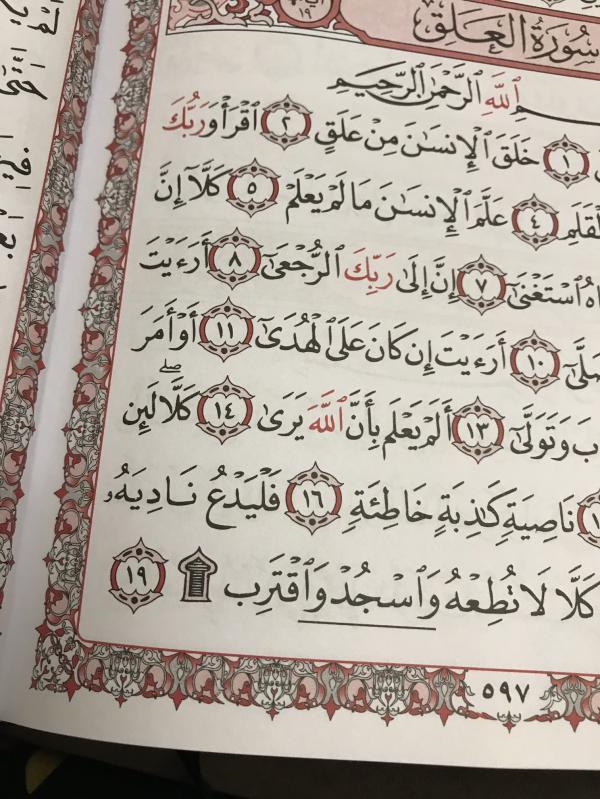 سُورَةُ العَلَقِ
ٱللَّهِ ٱلرَّحْمَٰنِ ٱلرَّحِيمِ
١ خَلَقَ ٱلْإِنسَٰنَ مِنْ عَلَقٍ ٢ ٱقْرَأْ وَرَبُّكَ
عَلَّمَ ٱلْإِنسَٰنَ مَا لَمْ يَعْلَمْ ٥ كَلَّآ إِنَّ ٤
ٱسْتَغْنَىٰٓ ٧ إِنَّ إِلَىٰ رَبِّكَ ٱلرُّجْعَىٰٓ ٨ أَرَءَيْتَ
١٠ أَرَءَيْتَ إِن كَانَ عَلَى ٱلْهُدَىٰٓ ١١ أَوْ أَمَرَ
وَتَوَلَّىٰٓ ١٣ أَلَمْ يَعْلَم بِأَنَّ ٱللَّهَ يَرَىٰ ١٤ كَلَّا لَئِن
نَاصِيَةٍ كَٰذِبَةٍ خَاطِئَةٍ ١٦ فَلْيَدْعُ نَادِيَهُۥ
كَلَّا لَا تُطِعْهُ وَٱسْجُدْ وَٱقْتَرِب ۩ ١٩
٥٩٧